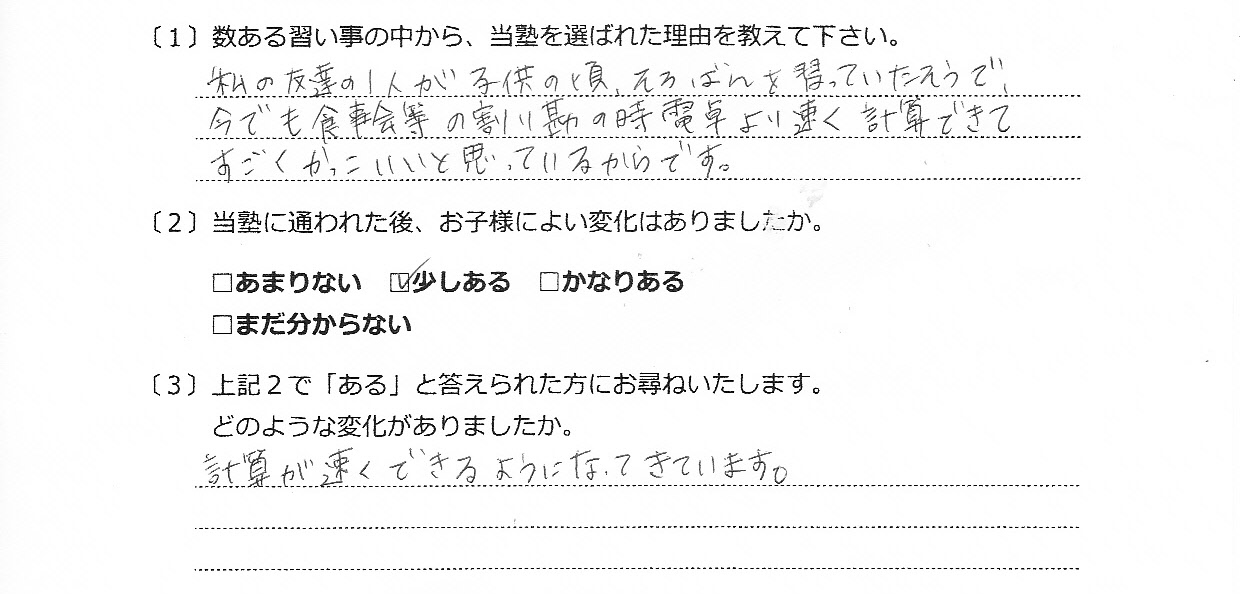 〔１〕数ある習い事の中から、当塾を選ばれた理由を教えて下さい。
私の友達の1人が子供の頃、そろばんを習っていたそうで、
今でも食事会等の割り勘の時電卓より速く計算できて
すごくかっこいいと思っているからです。
〔２〕当塾に通われた後、お子様によい変化はありましたか。
□あまりない ☑少しある □かなりある
□まだ分からない
〔３〕上記２で「ある」と答えられた方にお尋ねいたします。
どのような変化がありましたか。
計算が速くできるようになってきています。